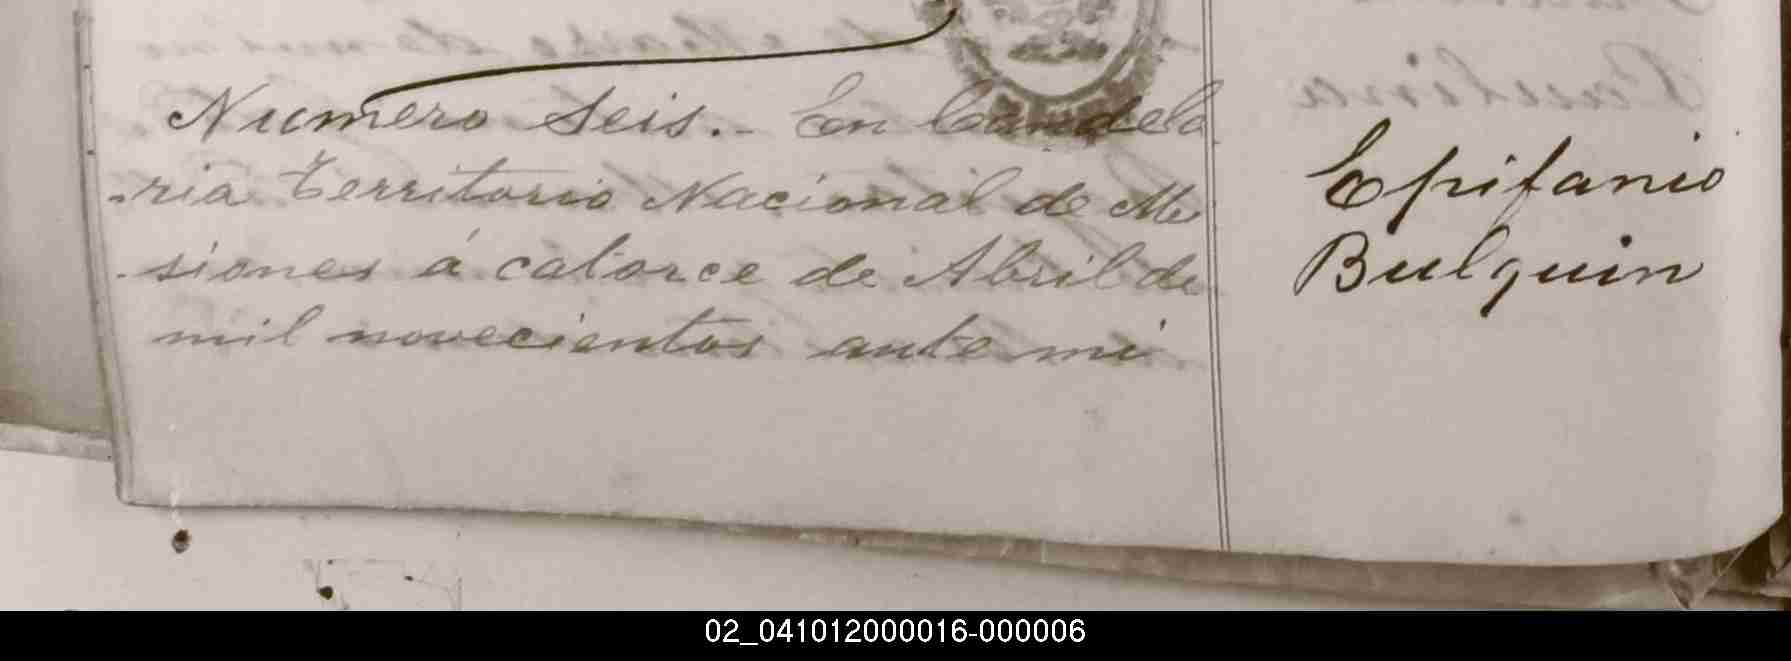 Numero Seis.- En Candela
-ria Territorio Nacional de Mi
-siones á catorce de Abril de
mil novecientos ante mi
Epifanio
Bulquin
02_041012000016-000006